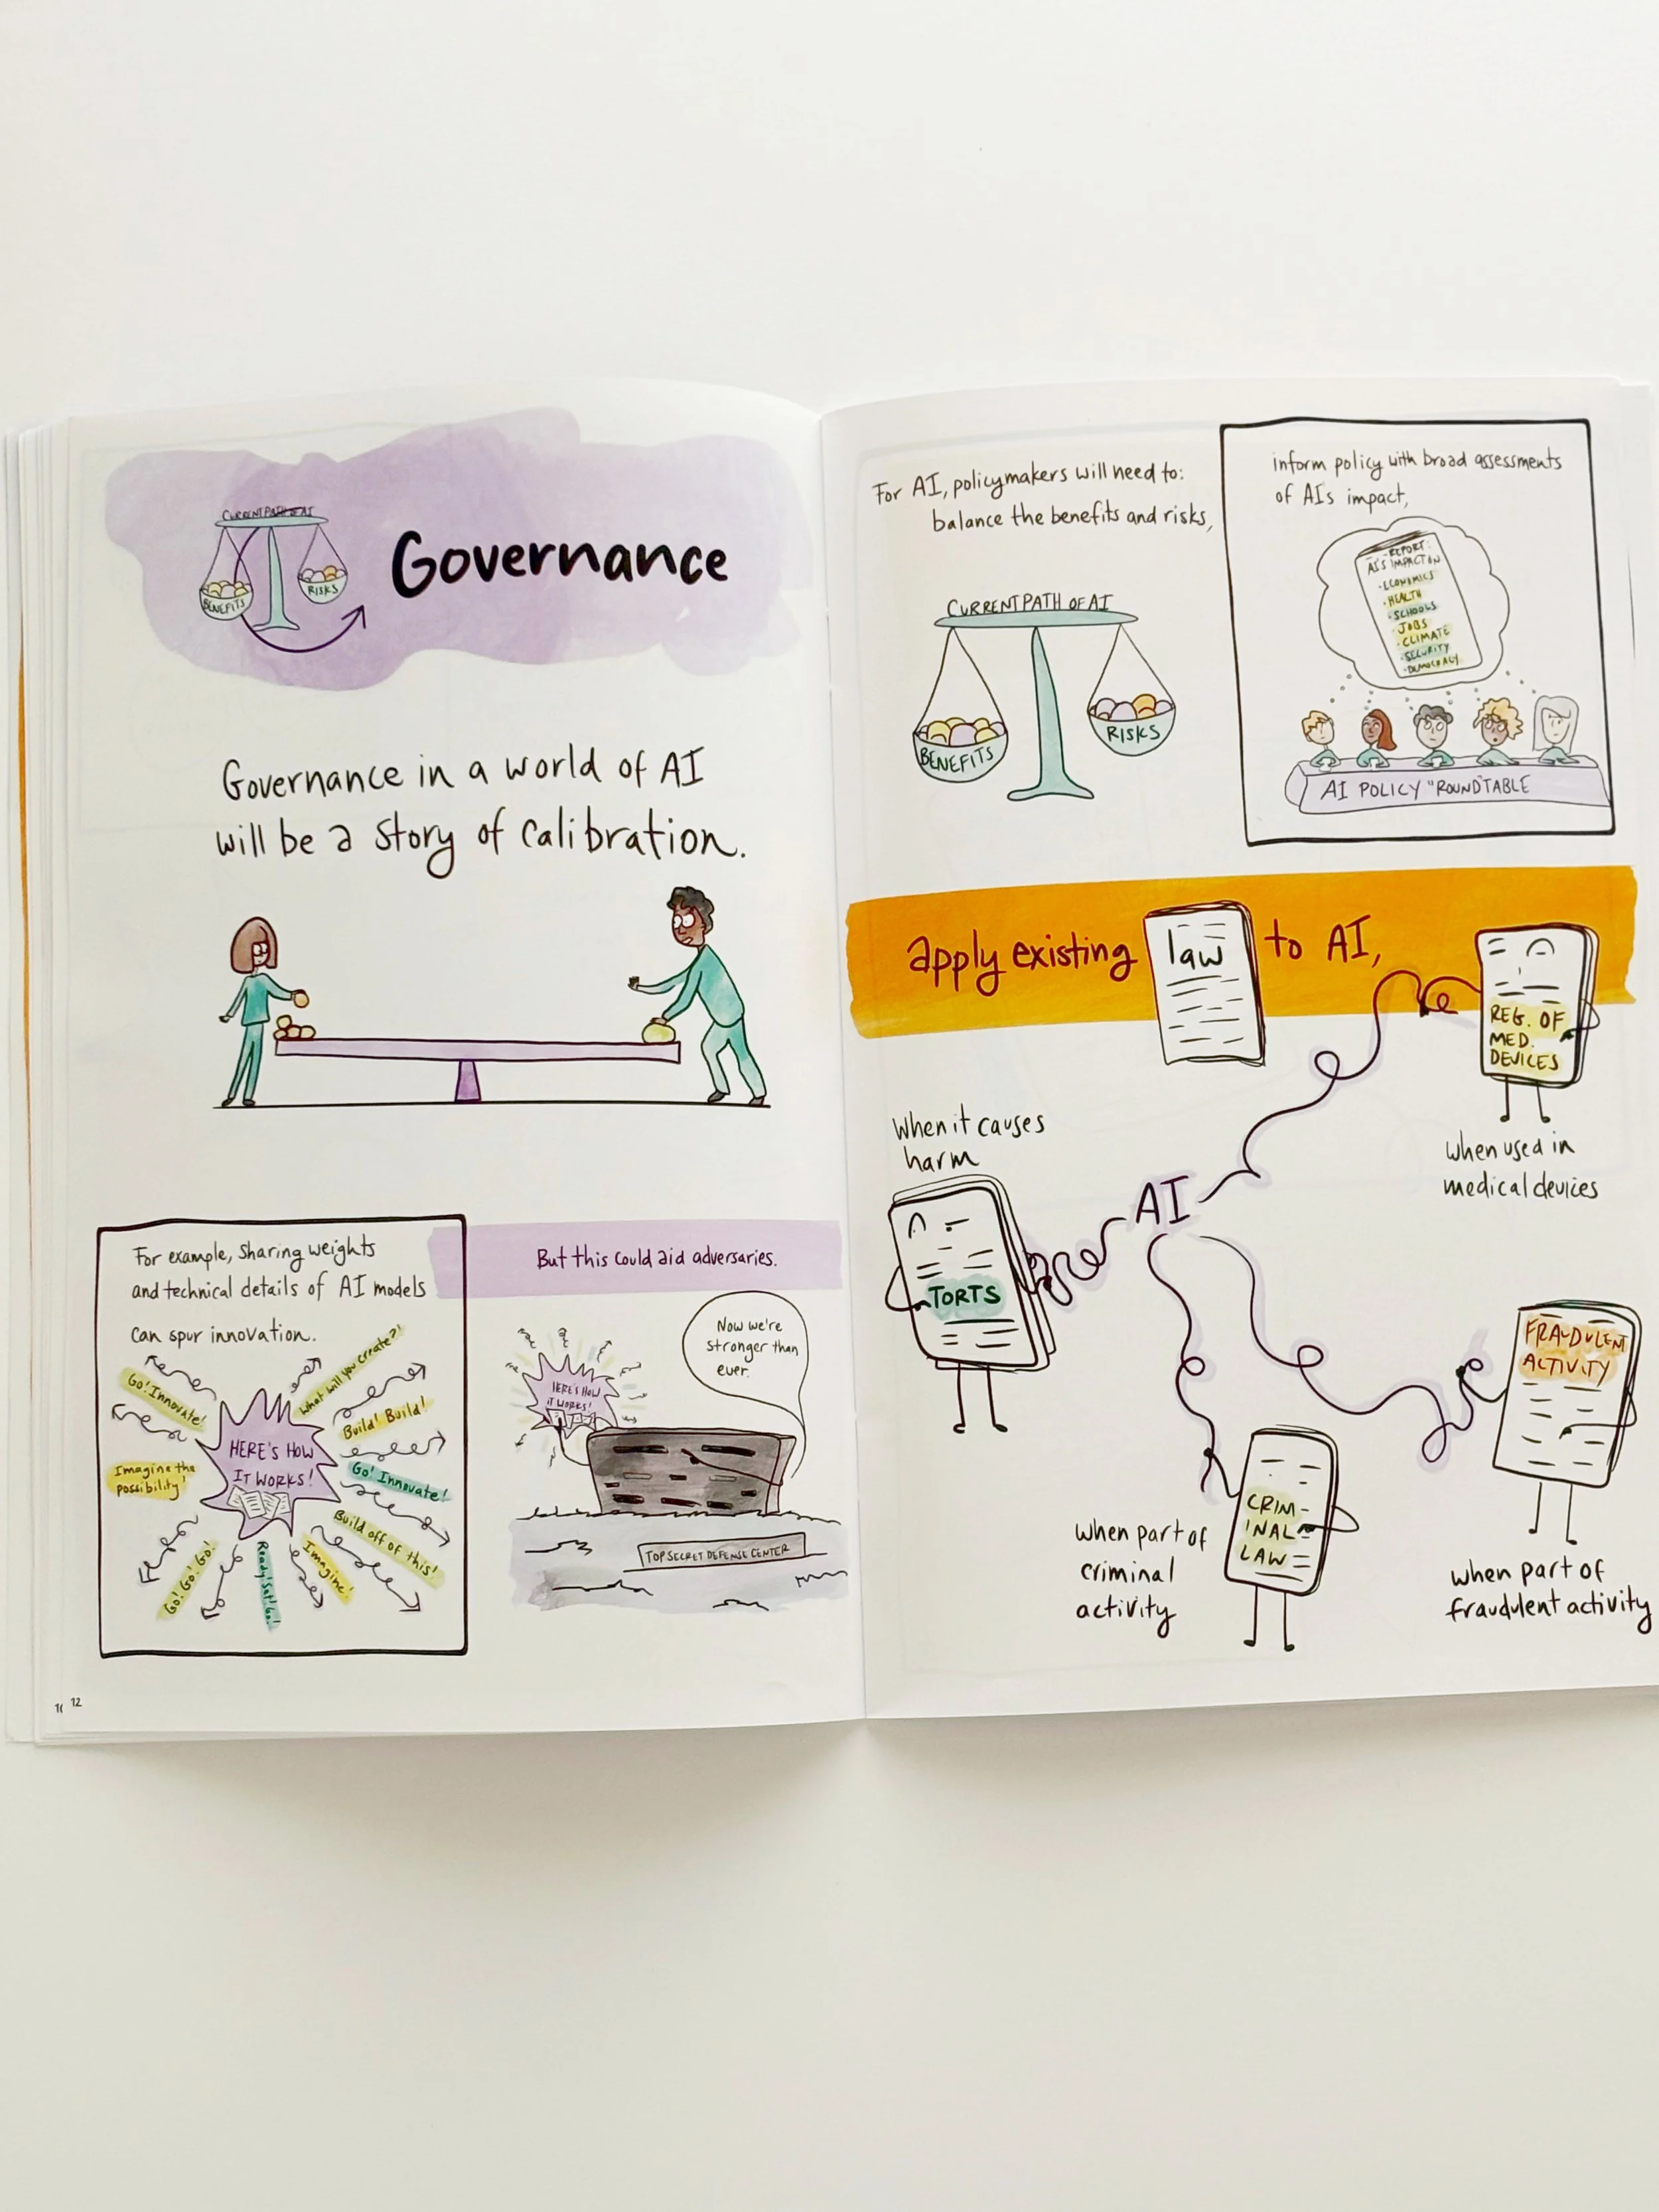 CURRENT PATH OF AI
BENEFITS
RISKS
Governance
Governance in a world of AI
will be a story of calibration.
For example, sharing weights
and technical details of AI models
can spur innovation.
Go! Innovate!
What will you create?!
Build! Build!
HERE'S HOW
IT WORKS!
Imagine the
possibility!
Go! Innovate!
Build off of this!
Go! Go! Go!
Ready! Set! Go!
Imagine!
But this could aid adversaries.
Now we're
stronger than
ever.
HERE'S HOW
IT WORKS!
TOP SECRET DEFENSE CENTER
12
For AI, policymakers will need to:
balance the benefits and risks,
CURRENT PATH OF AI
BENEFITS
RISKS
inform policy with broad assessments
of AIs impact,
REPORT:
AI'S IMPACT ON
·ECONOMICS
·HEALTH
·SCHOOLS
·JOBS
·CLIMATE
·SECURITY
·DEMOCRACY
AI POLICY "ROUND"TABLE
apply existing law to AI,
REG. OF
MED.
DEVICES
when used in
medical devices
When it causes
harm
TORTS
AI
CRIM-
INAL
LAW
when part of
criminal
activity
FRAUDULENT
ACTIVITY
when part of
fraudulent activity